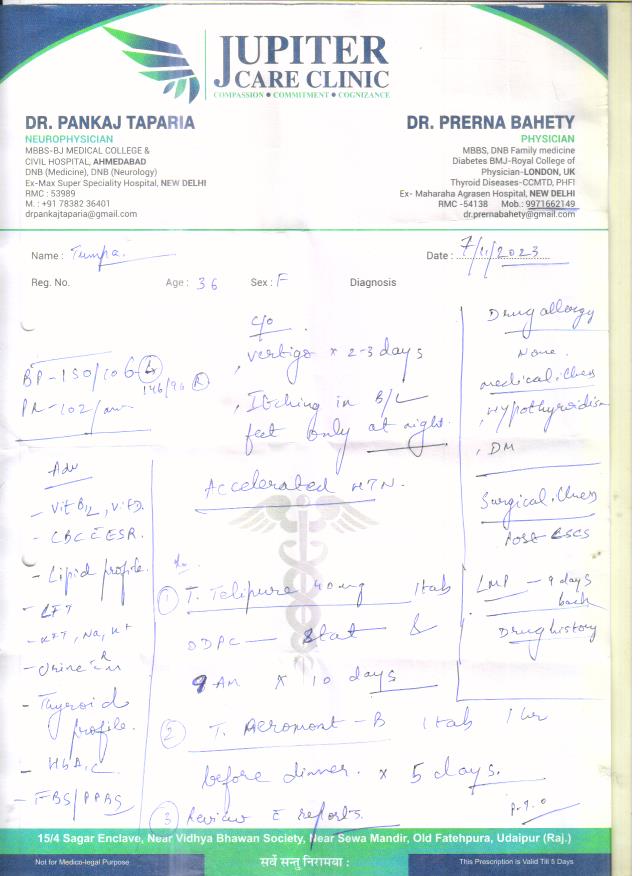 JUPITER
CARE CLINIC
COMPASSION • COMMITMENT • COGNIZANCE
DR. PANKAJ TAPARIA
NEUROPHYSICIAN
MBBS-BJ MEDICAL COLLEGE &
CIVIL HOSPITAL, AHMEDABAD
DNB (Medicine), DNB (Neurology)
Ex-Max Super Speciality Hospital, NEW DELHI
RMC : 53989
M. : +91 78382 36401
drpankajtaparia@gmail.com
DR. PRERNA BAHETY
PHYSICIAN
MBBS, DNB Family medicine
Diabetes BMJ-Royal College of
Physician-LONDON, UK
Thyroid Diseases-CCMTD, PHFI
Ex- Maharaha Agrasen Hospital, NEW DELHI
RMC -54138 Mob.: 9971662149
dr.prernabahety@gmail.com
Name : Tumpa
Date : 7/11/2023
Reg. No. Age : 36 Sex : F Diagnosis
BP-150/106 L
146/96 R
PR-102/
Adv
- Vit B12, Vit D
- CBC E ESR.
- Lipid profile.
- LFT
- KFT, Na, K+
- Urine
- Thyroid
profile.
- HbA1c
- FBS/PPBS
c/o
, vertigo x 2-3 days
, Itching in B/L
feet only at night.
Accelerated HTN.
Rx.
① T. Telipure 40mg 1tab
ODPC — Stat &
9AM X 10 days
② T. Aeromont-B 1tab 1hr
before dinner. x 5 days.
③ Review E reports.
Drug allergy
None.
medical illness
, Hypothyroidism
, DM
Surgical illness
Post LSCS
LMP - 9 days
back
Drug history
P.T.O
15/4 Sagar Enclave, Near Vidhya Bhawan Society, Near Sewa Mandir, Old Fatehpura, Udaipur (Raj.)
Not for Medico-legal Purpose
सर्वे सन्तु निरामया :
This Prescription is Valid Till 5 Days